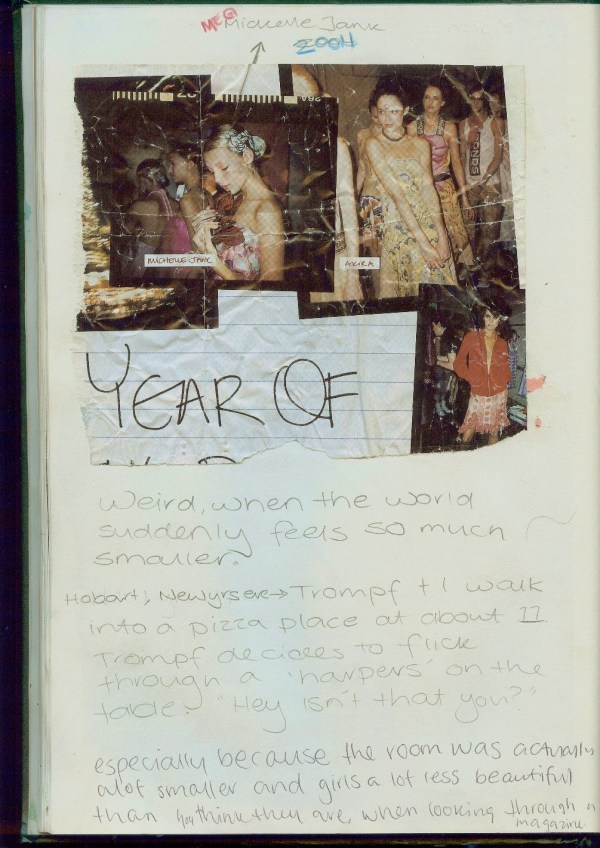 MEG
Michelle Jank
2004
MICHELLE JANK
AKIRA
YEAR OF
Weird, when the world
suddenly feels so much
smaller.
Hobart, Newyrseve → Trompf + I walk
into a pizza place at about 11
Trompf decides to flick
through a 'harpers' on the
table. "Hey isn't that you?"
especially because the room was actually
alot smaller and girls a lot less beautiful
than you think they are, when looking through a
magazine.